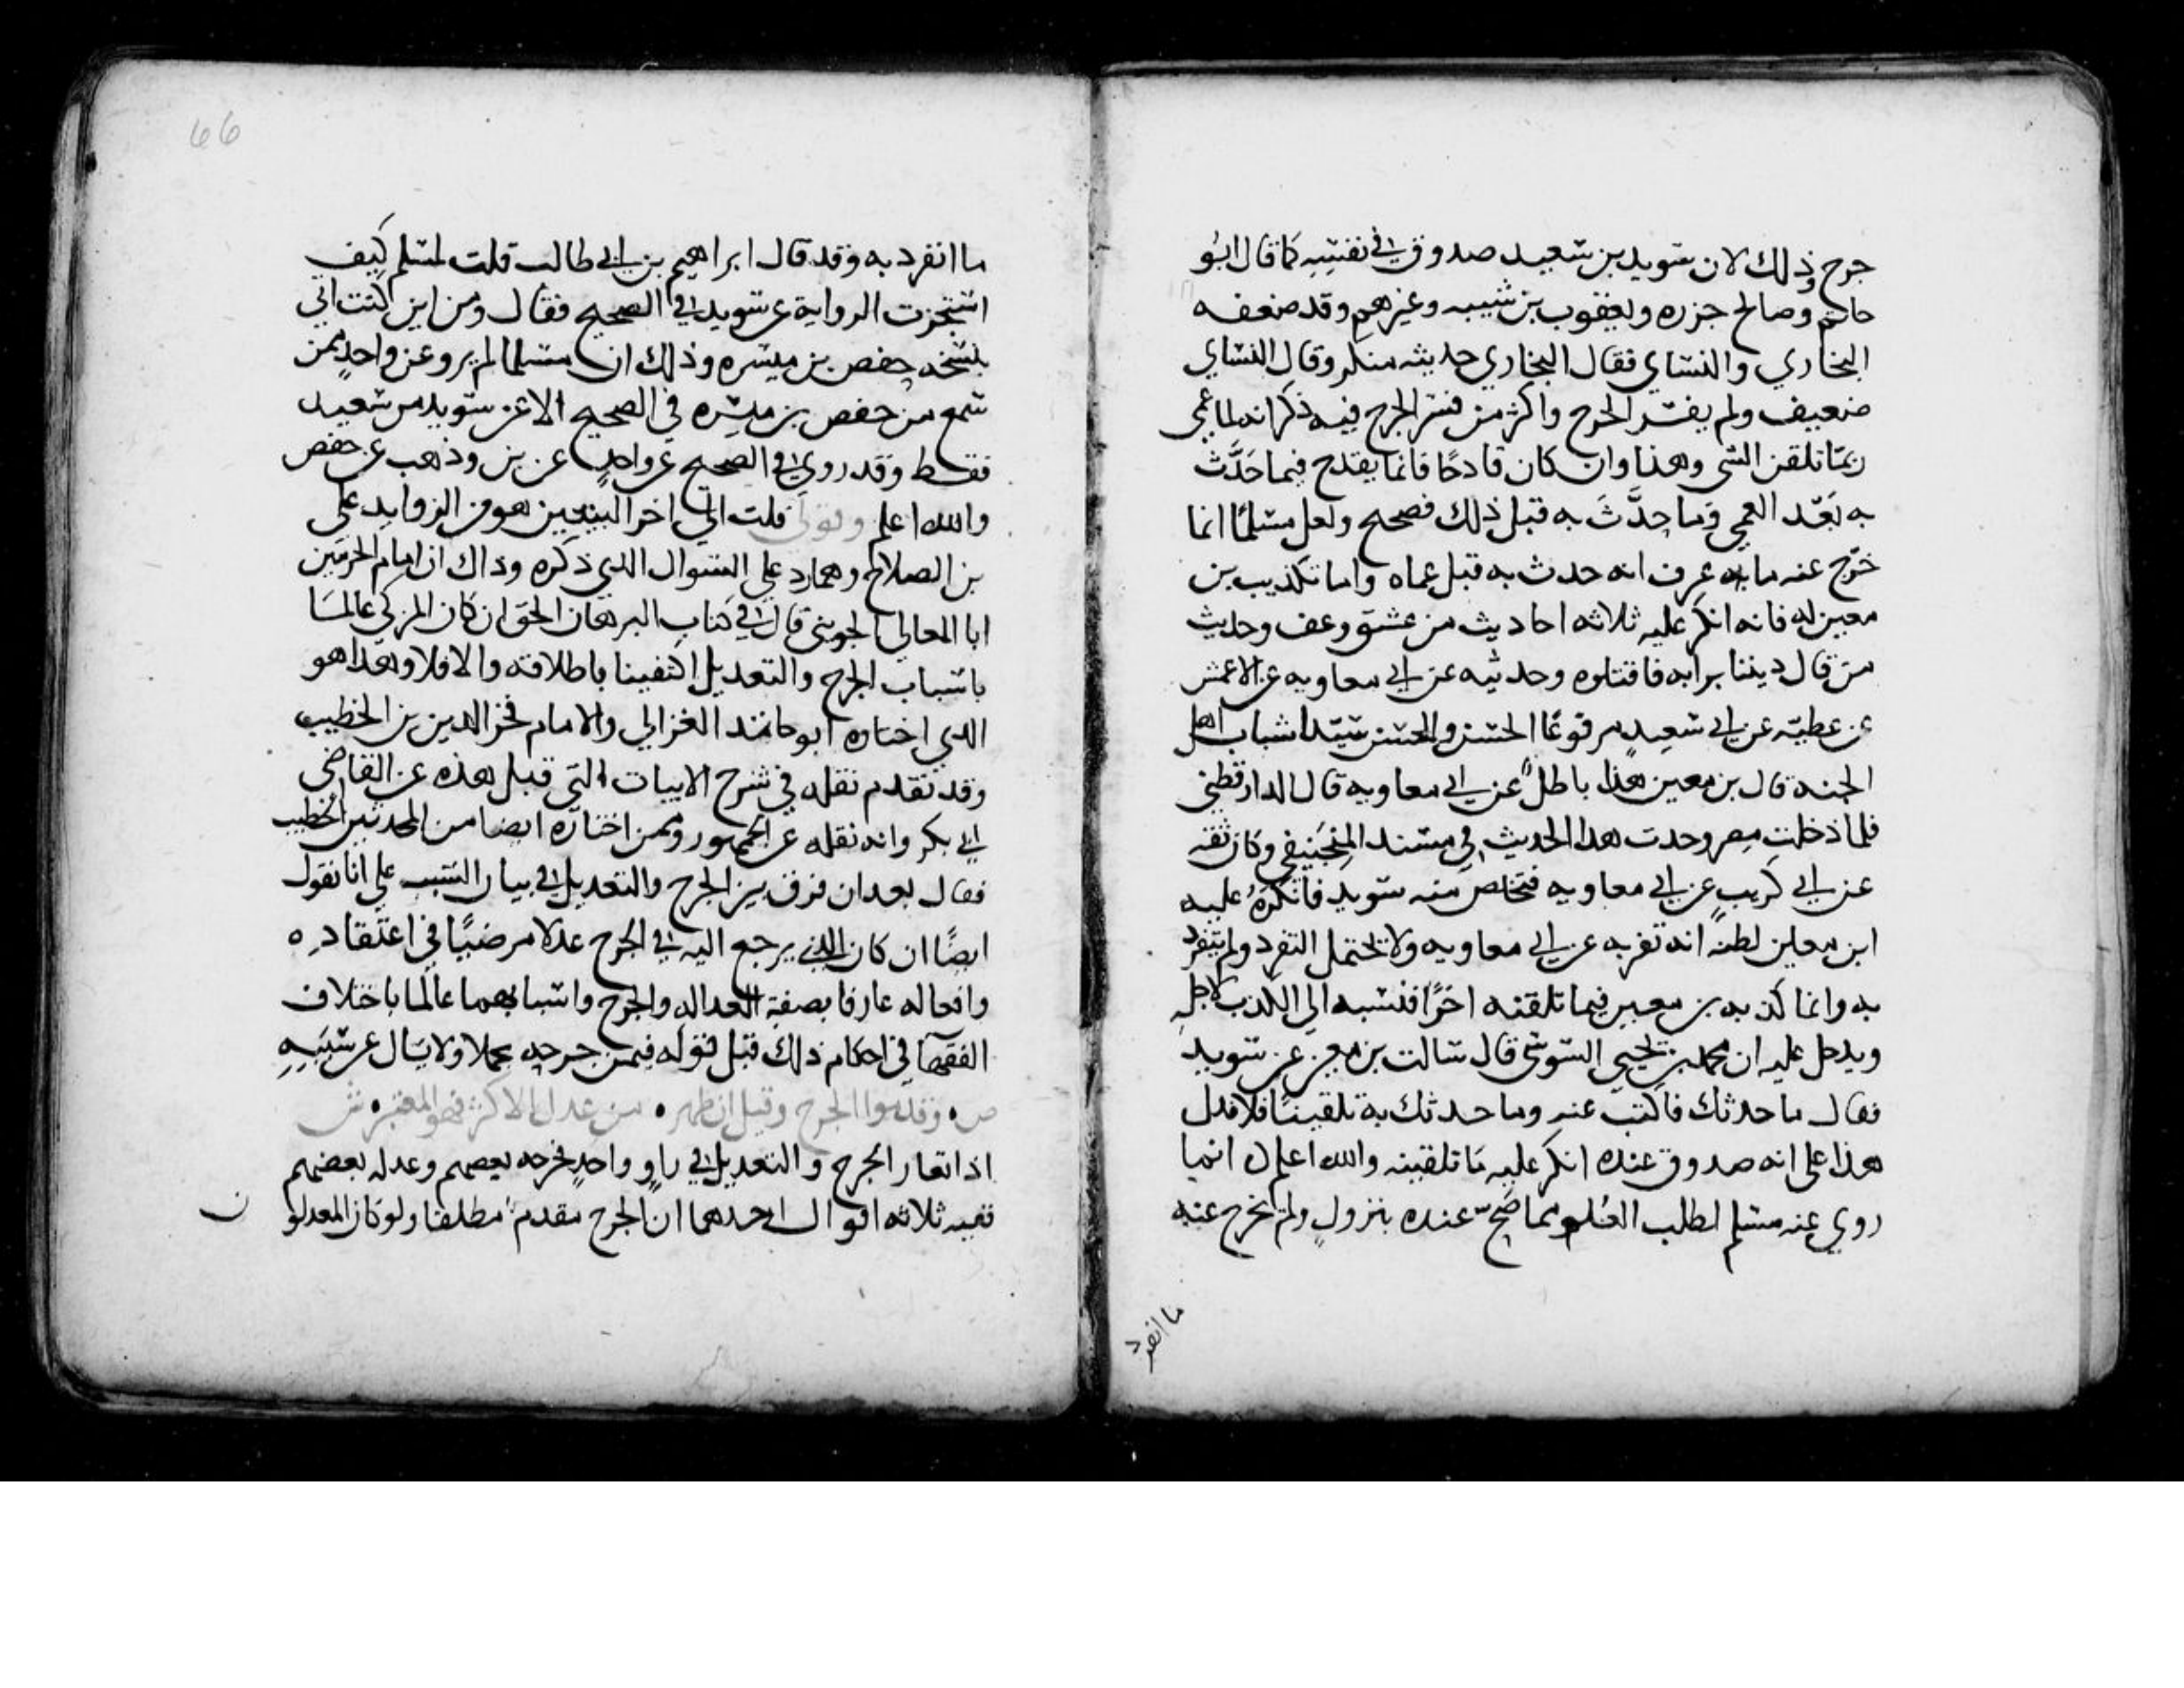 جرح وذلك لان سويد بن سعيد صدوق في نفسه كما قال ابو
حاتم وصالح جزره ويعقوب بن شيبه وغيرهم وقد ضعفه
البخاري والنساي فقال البخاري حديثه منكر وقال النساي
ضعيف ولم يفسر الجرح واكثر من فسر الجرح فيه ذكر انه لما عمي
ربما تلقن الشي وهذا وان كان قادحا فانما يقدح فيما حدَّث
به بعد العمي وما حدَّث به قبل ذلك فصحيح ولعل مسلما انما
خرّج عنه ما عرف انه حدث به قبل عماه واما تكذيب بن
معين له فانه انكر عليه ثلاثه احاديث من عشق وعف وحديث
من قال في ديننا برايه فاقتلوه وحديثه عن ابي معاويه عن الاعمش
عن عطيه عن ابي سعيد مرفوعًا الحسن والحسين سيدا شباب اهل
الجنه قال بن معين هذا باطل عن ابي معاويه قال الدارقطني
فلما دخلت مصر وجدت هذا الحديث في مسند المنجنيقي وكان ثقه
عن ابي كريب عن ابي معاويه فتخلص منه سويد فانكره عليه
ابن معين لظنه انه تفرد به عن ابي معاويه ولا يحتمل التفرد ولم ينفرد
به وانما كذبه بن معين فيما تلقنه اخرًا فنسبه الي الكذب لاجله
ويدل عليه ان محمد بن يحيي السوسي قال سالت بن معين عن سويد
فقال ما حدثك فاكتب عنه وما حدثك به تلقينًا فلا فدل
هذا علي انه صدوق عنده انكر عليه ما تلقينه والله اعلم انما
روي عنه مسلم لطلب العلو مما صح عنده بنزول ولم يخرج عنه
ما انفرد
66
ما انفرد به وقد قال ابراهيم بن ابي طالب قلت لمسلم كيف
استجزت الرواية عن سويد في الصحيح فقال ومن اين كنت اتي
بنسخه حفص بن ميسره وذلك ان مسلما لم يرو عن واحد ممن
سمع من حفص بن ميسره في الصحيح الا عن سويد بن سعيد
فقط وقد روي في الصحيح عن واحد عن بن وهب عن حفص
والله اعلم وقولي قلت الي اخر البيتين هو من الزوايد علي
بن الصلاح وهما رد علي السوال الذي ذكره وذاك ان امام الحرمين
ابا المعالي الجويني قال في كتاب البرهان الحق ان كان المزكي عالما
باسباب الجرح والتعديل اكتفينا باطلاقه والا فلا وهذا هو
الذي اختاره ابو حامد الغزالي والامام فخر الدين بن الخطيب
وقد تقدم نقله في شرح الابيات التي قبل هذه عن القاضي
ابي بكر وانه نقله عن الجمهور وممن اختاره ايضا من المحدثين الخطيب
فقال بعد ان فرق بين الجرح والتعديل في بيان السبب علي انا نقول
ايضًا ان كان الذي يرجع اليه في الجرح عدلا مرضيًا في اعتقاده
وافعاله عارفا بصفة العداله والجرح واسبابهما عالما باختلاف
الفقها في احكام ذلك قبل قوله فيمن جرحه مجملا ولا يسال عن سببه
ص وقدموا الجرح وقيل ان ظهر من عدل الاكثر فهو المعتبر ش
اذا تعارض الجرح والتعديل في راوٍ واحد فجرحه بعضهم وعدله بعضهم
ففيه ثلاثه اقوال احدهما ان الجرح مقدم مطلقا ولو كان المعدلون